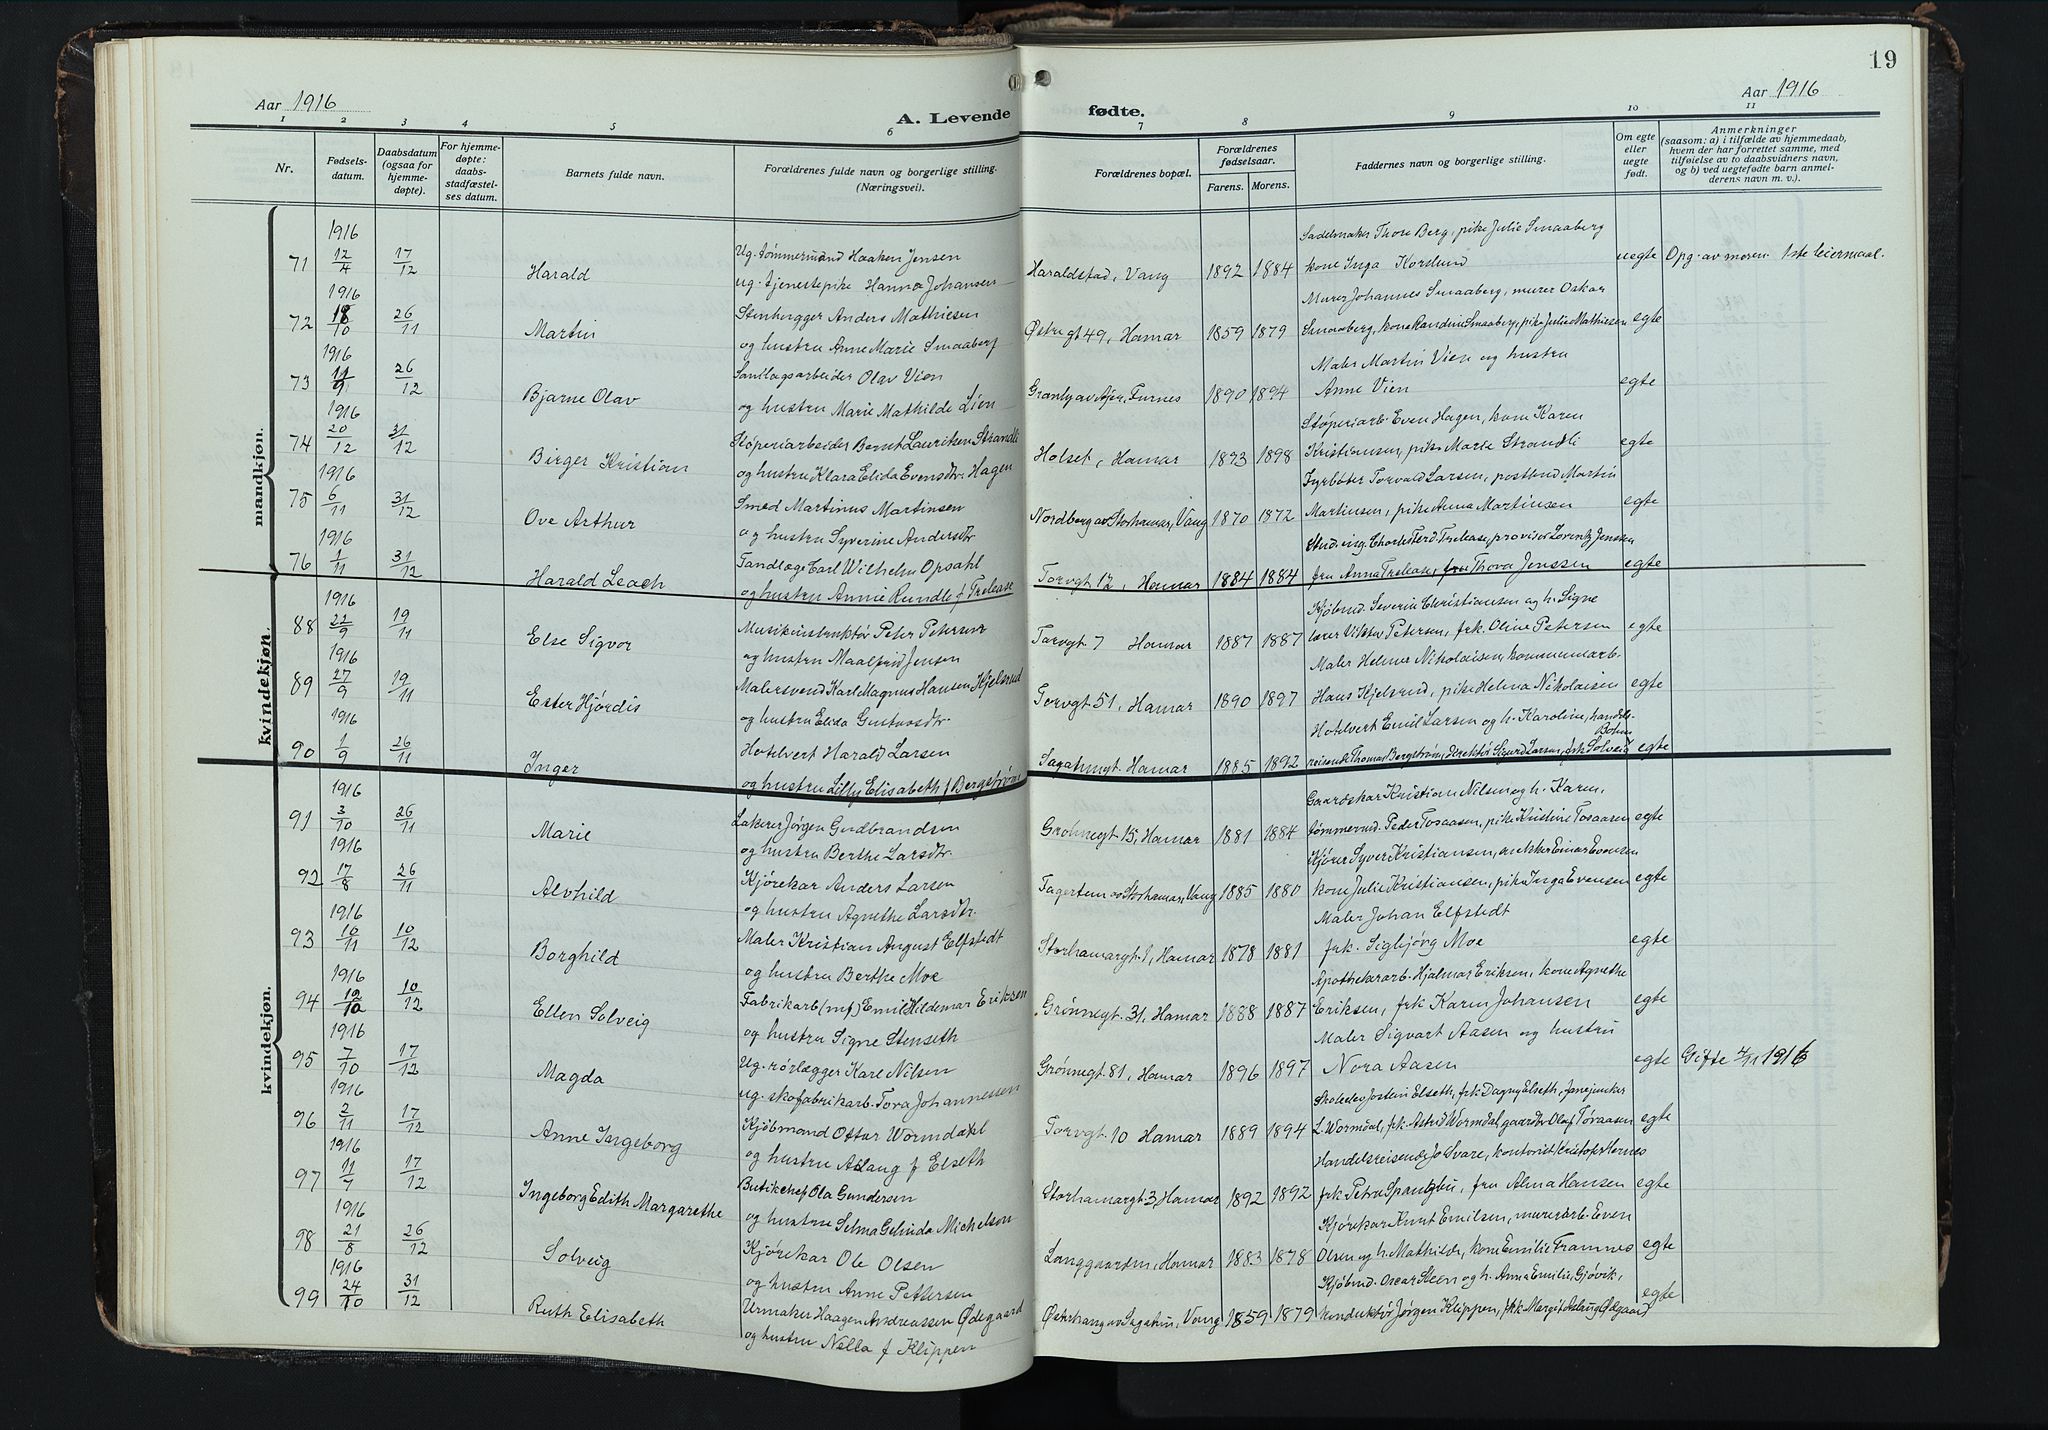 19
Aar 1916
A. Levende fødte.
Aar 1916
1 2 3 4 5 6 7 8 9 10 11
Nr.
Fødsels-
datum.
Daabsdatum
(ogsaa for
hjemme-
døpte).
For hjemme-
døpte:
daabs-
stadfæstel-
ses datum.
Barnets fulde navn.
Forældrenes fulde navn og borgerlige stilling.
(Næringsvei).
Forældrenes bopæl.
Forældrenes
fødselsaar.
Farens. Morens.
Faddernes navn og borgerlige stilling.
Om egte
eller
uegte
født.
Anmerkninger
(saasom: a) i tilfælde av hjemmedaab,
hvem der har forrettet samme, med
tilføielse av to daabsvidners navn,
og b) ved uegtefødte barn anmel-
derens navn m. v.).
mandkjøn.
1916 Sadelmaker Thore Berg, pike Julie Smaaberg
71 12/4 17/12 Harald Ug. tømmermand Haaken Jensen Haraldstad, Vang 1892 1884 kone Inga Korslund uegte Opg. av moren. 1ste leiermaal.
1916 ug. tjenestepike Hanna Johansen Murer Johannes Smaaberg, murer Oskar
72 18/10 26/11 Martin Stenhugger Anders Mathiesen Østregt 49, Hamar 1859 1879 Smaaberg, kone Randine Smaaberg, pike Julie Mathiesen egte
1916 og hustru Anne Marie Smaaberg Maler Martin Vien og hustru
73 11/9 26/12 Bjarne Olav Olav Vien Furnes 1890 1894 Anne Vien egte
1916 og hustru Marie Mathilde Lien Støperiarb. Even Hagen, kone Karen
74 20/12 31/12 Birger Kristian Støperiarbeider Bernt Lauritsen Strandli Holset, Hamar 1893 1898 Kristiansen, pike Marie Strandli egte
1916 og hustru Klara Elida Evensdtr. Hagen Fyrbøter Torvald Larsen, postbud Martin
75 6/11 31/12 Ove Arthur Smed Martinus Martinsen Nordberg av Storhamar, Vang 1870 1872 Martinsen, pike Anna Martinsen egte
1916 og hustru Syverine Andersdtr Stud. ing. Charles Ferd. Trelease, provisor Lorentz Jenssen
76 1/11 31/12 Harald Leach Tandlæge Carl Wilhelm Opsahl Torvgt 12, Hamar 1884 1884 fru Anna Trelease, fru Thora Jenssen egte
og hustru Annie Rundle f Trelease
kvindekjøn.
1916 Kjøbmd. Severin Christiansen og h. Signe
88 22/9 19/11 Else Sigvor Musikinstruktør Peter Petersen Torvgt. 7 Hamar 1887 1887 lærer Viktor Petersen, frk. Oline Petersen egte
1916 og hustru Maalfrid Jensen Maler Helmer Nikolaisen, kommunearb.
89 27/9 19/11 Ester Hjørdis Malersvend Karl Magnus Hansen Kjelsrud Torvgt 51, Hamar 1890 1897 Hans Kjelsrud, pike Helma Nikolaisen egte
1916 og hustru Elida Gustavsdtr. Hotelvert Emil Larsen og h. Karoline, handels-
90 1/9 26/11 Inger Hotelvert Harald Larsen Hamar 1885 1892 reisende Thomas Bergstrøm, direktør Sigurd Larsen, frk Solveig Bohm egte
og hustru Lilly Elisabeth f Bergstrøm
kvindekjøn.
1916 Gaardskar Kristian Nilsen og h. Karen,
91 3/10 26/11 Marie Lakerer Jørgen Gudbrandsen Grønnegt 15, Hamar 1881 1884 tømmermd. Peder Tosaasen, pike Kristine Tosaasen egte
1916 og hustru Berthe Larsdtr. Kjører Syver Kristiansen, snekker Einar Evensen
92 17/8 26/11 Alvhild Kjørekar Anders Larsen Fagertem av Storhamar, Vang 1885 1880 kone Julie Kristiansen, pike Inga Evensen egte
1916 og hustru Agnethe Larsdtr. Maler Johan Elfstedt
93 10/11 10/12 Borghild Maler Kristian August Elfstedt Storhamargt. 1, Hamar 1878 1881 frk. Sigbjørg Moe egte
1916 og hustru Berthe Moe Apothekerarb. Hjalmar Eriksen, kone Agnethe
94 19/10 10/12 Ellen Solveig Fabrikarb (mf) Emil Hildemar Eriksen Grønnegt. 31, Hamar 1888 1887 Eriksen, frk Karen Johansen egte
1916 og hustru Signe Stenseth Maler Sigvart Aasen og hustru
95 7/10 17/12 Magda Ug. rørlægger Karl Nilsen Grønnegt 81, Hamar 1896 1897 Nora Aasen egte Gifte 4/11 1916
1916 ug. skofabrikarb. Tora Johannessen Skoleelev Jostein Elseth, frk Dagny Elseth,
96 2/11 17/12 Anne Ingeborg Kjøbmand Ottar Wormdahl Torvgt. 10 Hamar 1889 1894 L. Wormdal, frk. Astrid Wormdal, gaardbr Olaf Toraasen egte
1916 og hustru Aslaug f Elseth Handelsreisende Jo Svare, kontorist Kristofer Hornes
97 11/7 17/12 Ingeborg Edith Margarethe Butikchef Ola Gundersen Storhamargt 3, Hamar 1892 1892 frk Petra Spangbu, fru Alma Hansen egte
1916 og hustru Selma Gelinda Michelson Kjørekar Knut Emilsen, murerarb. Even
98 21/8 26/12 Solveig Kjørekar Ole Olsen Langgaarden, Hamar 1883 1878 Olsen og h. Mathilde, kone Emilie Framnes egte
1916 og hustru Anne Pettersen Kjøbmd. Oscar Steen og h. Anna Emilie, Gjøvik,
99 24/10 31/12 Ruth Elisabeth Urmaker Haagen Andreassen Ødegaard Østerhaug av Sagatun, Vang 1859 1879 konduktør Jørgen Klippen, frk Margit Aslaug Ødegaard egte
og hustru Nella f Klippen